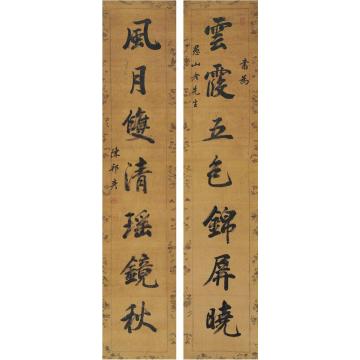 雲霞五色錦屏曉
書為
愚山老先生
風月雙清瑤鏡秋
陳邦彥